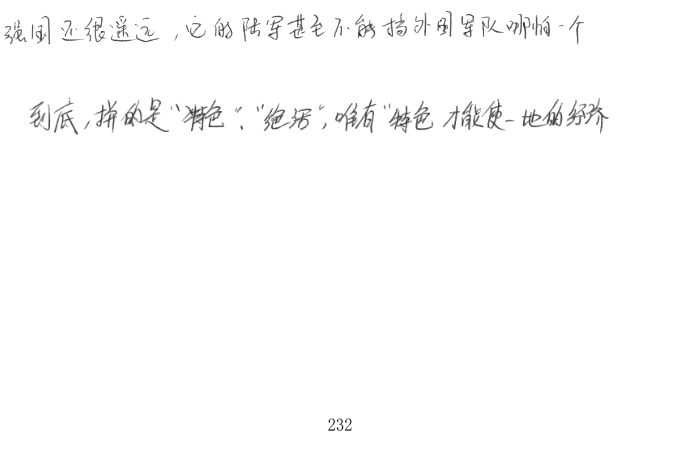 强国还很遥远，它的陆军甚至不能挡外国军队哪怕一个
到底，拼的是“特色”、“绝活”，唯有“特色 才能使一地的经济
232